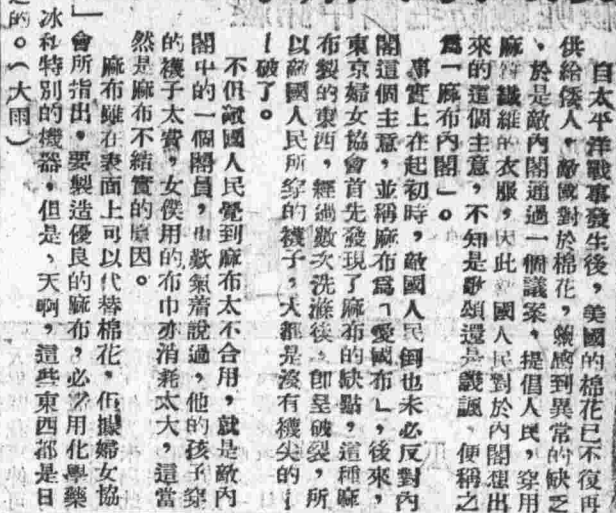 自太平洋戰事發生後，美國的棉花已不復再
供給倭人，敵國對於棉花，頗感到異常的缺乏
，於是敵內閣通過一個議案，提倡人民，穿用
麻苧纖維的衣服，因此敵國人民對於內閣想出
來的這個主意，不知是歌頌還是譏諷，便稱之
爲「麻布內閣」。
事實上在起初時，敵國人民倒也未必反對內
閣這個主意，並稱麻布爲「愛國布」，後來，
東京婦女協會首先發現了麻布的缺點，這種麻
布製的東西，經過數次洗滌後，卽呈破裂，所
以敵國人民所穿的襪子，大都是沒有襪尖的—
—破了。
不但敵國人民覺到麻布太不合用，就是敵內
閣中的一個閣員，也歎氣着說過，他的孩子穿
的襪子太費，女僕用的布巾亦消耗太大，這當
然是麻布不結實的原因。
麻布雖在表面上可以代替棉花，但據婦女協
會所指出，要製造優良的麻布，必需用化學藥
冰和特別的機器，但是，天啊，這些東西都是日
的。（大雨）